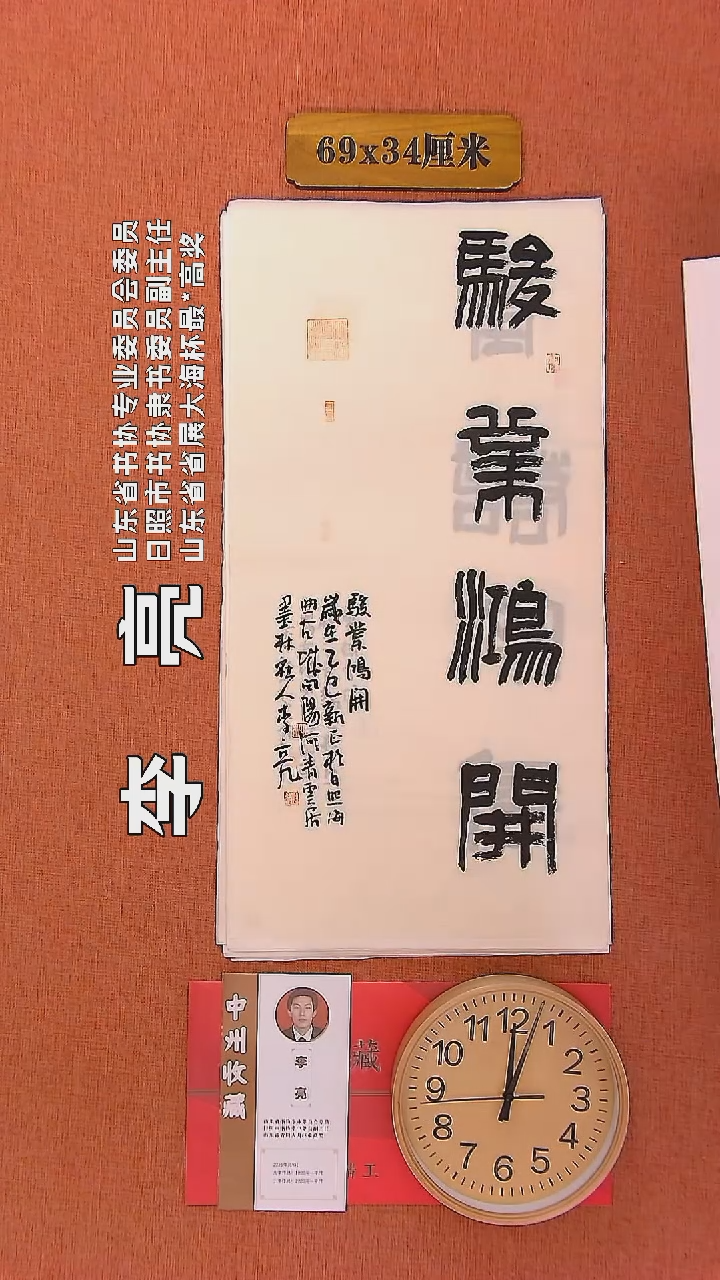 69x34厘米
駿業鴻開
駿業鴻開
歲在乙巳新正於日照海
曲古城向陽河青雲居
墨林
人李亮
李亮
山东省书协专业委员会委员
日照市书协隶书委员副主任
山东省省展大海杯最*高奖
中州收藏
李亮
藏
工
12
1
2
3
4
5
6
7
8
9
10
11